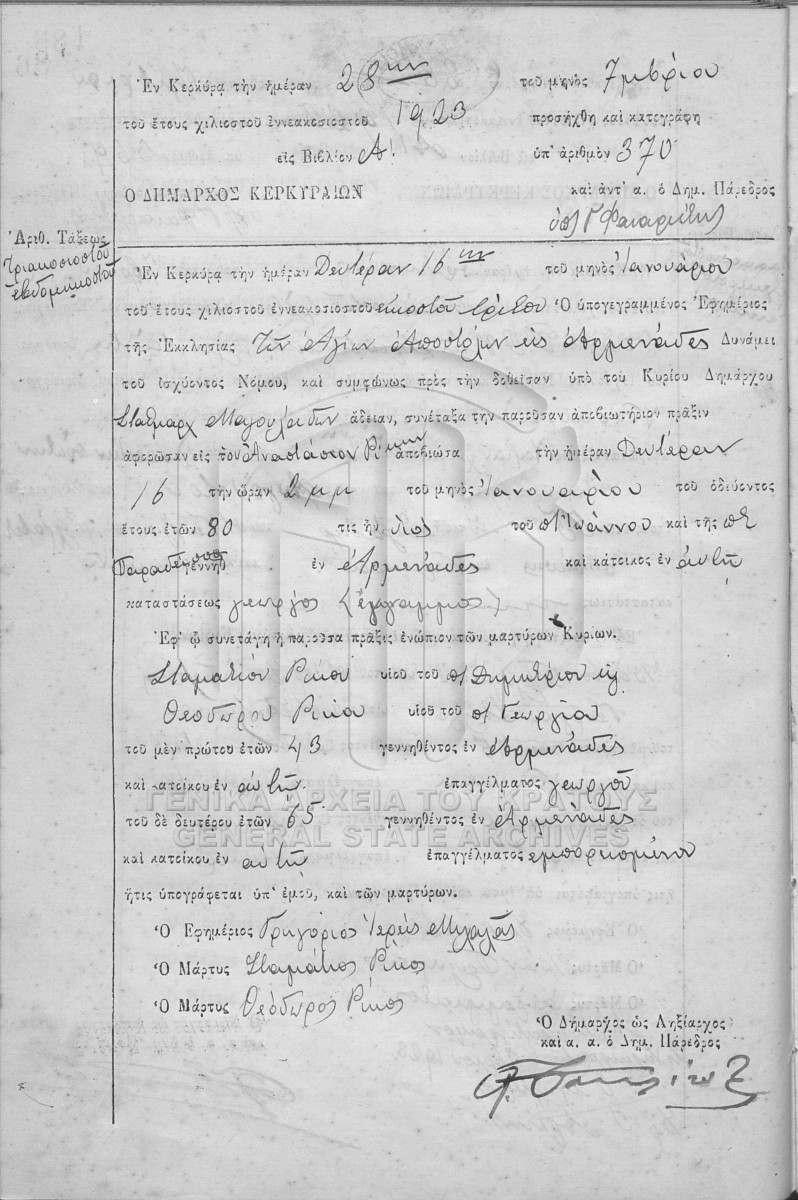 Ἐν Κερκύρᾳ τὴν ἡμέραν 28ην τοῦ μηνὸς 7μβρίου
τοῦ ἔτους χιλιοστοῦ ἐννεακοσιοστοῦ 1923 προσήχθη καὶ κατεγράφη
εἰς Βιβλίον Α' ὑπ' ἀριθμὸν 370
Ο ΔΗΜΑΡΧΟΣ ΚΕΡΚΥΡΑΙΩΝ καὶ ἀντ' α. ὁ Δημ. Πάρεδρος
Ἀριθ. Τάξεως
τριακοσιοστοῦ
ἑβδομηκοστοῦ
Ἐν Κερκύρᾳ τὴν ἡμέραν Δευτέραν 16ην τοῦ μηνὸς Ἰανουάριου
τοῦ ἔτους χιλιοστοῦ ἐννεακοσιοστοῦ εἰκοστοῦ τρίτου Ὁ ὑπογεγραμμένος Ἐφημέριος
τῆς Ἐκκλησίας τῶν Ἁγίων Ἀποστόλων εἰς Ἀρμενάδες Δυνάμει
τοῦ ἰσχύοντος Νόμου, καὶ συμφώνως πρὸς τὴν δοθεῖσαν ὑπὸ τοῦ Κυρίου Δημάρχου
ἄδειαν, συνέταξα την παροῦσαν ἀποβιωτήριον πρᾶξιν
ἀφορῶσαν εἰς τὸν Ἀναστάσιον ἀποβιώσα τὴν ἡμέραν Δευτέραν
16 τὴν ὥραν 2 μμ τοῦ μηνὸς Ἰανουαρίου τοῦ ὁδεύοντος
ἔτους ἐτῶν 80 τις ἦν υἱος τοῦ π Ἰωάννου καὶ τῆς
γεννηθ ἐν Ἀρμενάδες καὶ κάτοικος ἐν αὐτῇ
καταστάσεως γεωργὸς (ἐγγαμμος)
Ἐφ' ᾧ συνετάγη ἡ παροῦσα πρᾶξις ἐνώπιον τῶν μαρτύρων Κυρίων.
Σταματίου Ρίκου υἱοῦ τοῦ π Δημητρίου
Θεοδώρου Ρίκου υἱοῦ τοῦ π Γεωργίου
τοῦ μὲν πρώτου ἐτῶν 43 γεννηθέντος ἐν Ἀρμενάδες
καὶ κατοίκου ἐν αὐτῇ ἐπαγγέλματος γεωργοῦ
ΓΕΝΙΚΑ ΑΡΧΕΙΑ ΤΟΥ ΚΡΑΤΟΥΣ
τοῦ δὲ δευτέρου ἐτῶν 65 γεννηθέντος ἐν Ἀρμενάδες
GENERAL STATE ARCHIVES
καὶ κατοίκου ἐν αὐτῇ ἐπαγγέλματος
ἥτις ὑπογράφεται ὑπ' ἐμοῦ, καὶ τῶν μαρτύρων.
Ὁ Ἐφημέριος Γρηγόριος Ἱερεὺς
Ὁ Μάρτυς Σταμάτιος Ρίκος
Ὁ Μάρτυς Θεόδωρος Ρίκος
Ὁ Δήμαρχος ὡς Ληξίαρχος
καὶ α. α. ὁ Δημ. Πάρεδρος